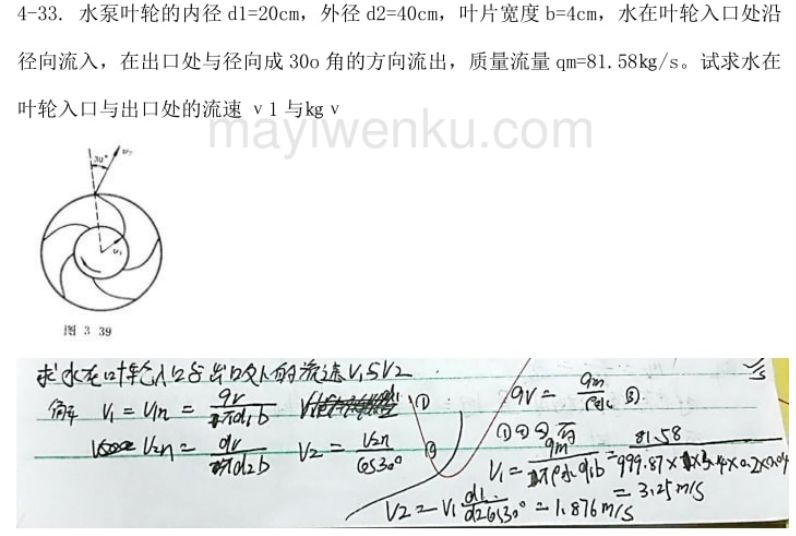 4-33. 水泵叶轮的内径 d1=20cm，外径 d2=40cm，叶片宽度 b=4cm，水在叶轮入口处沿
径向流入，在出口处与径向成 30o 角的方向流出，质量流量 qm=81.58kg/s。试求水在
叶轮入口与出口处的流速 v1 与kg v
mayiwenku.com
30°
图 3 39
求水在叶轮入口与出口处的流速V1与V2
解 V1 = V1n = qv/πd1b ① qv = qm/ρ水 ③
V2n = qv/πd2b V2 = V2n/cos30° ② ①②③ 有
V1 = qm/πρ水d1b = 81.58/999.87×3.14×0.2×0.04 = 3.25m/s
V2 = V1 d1/d2cos30° = 1.876m/s